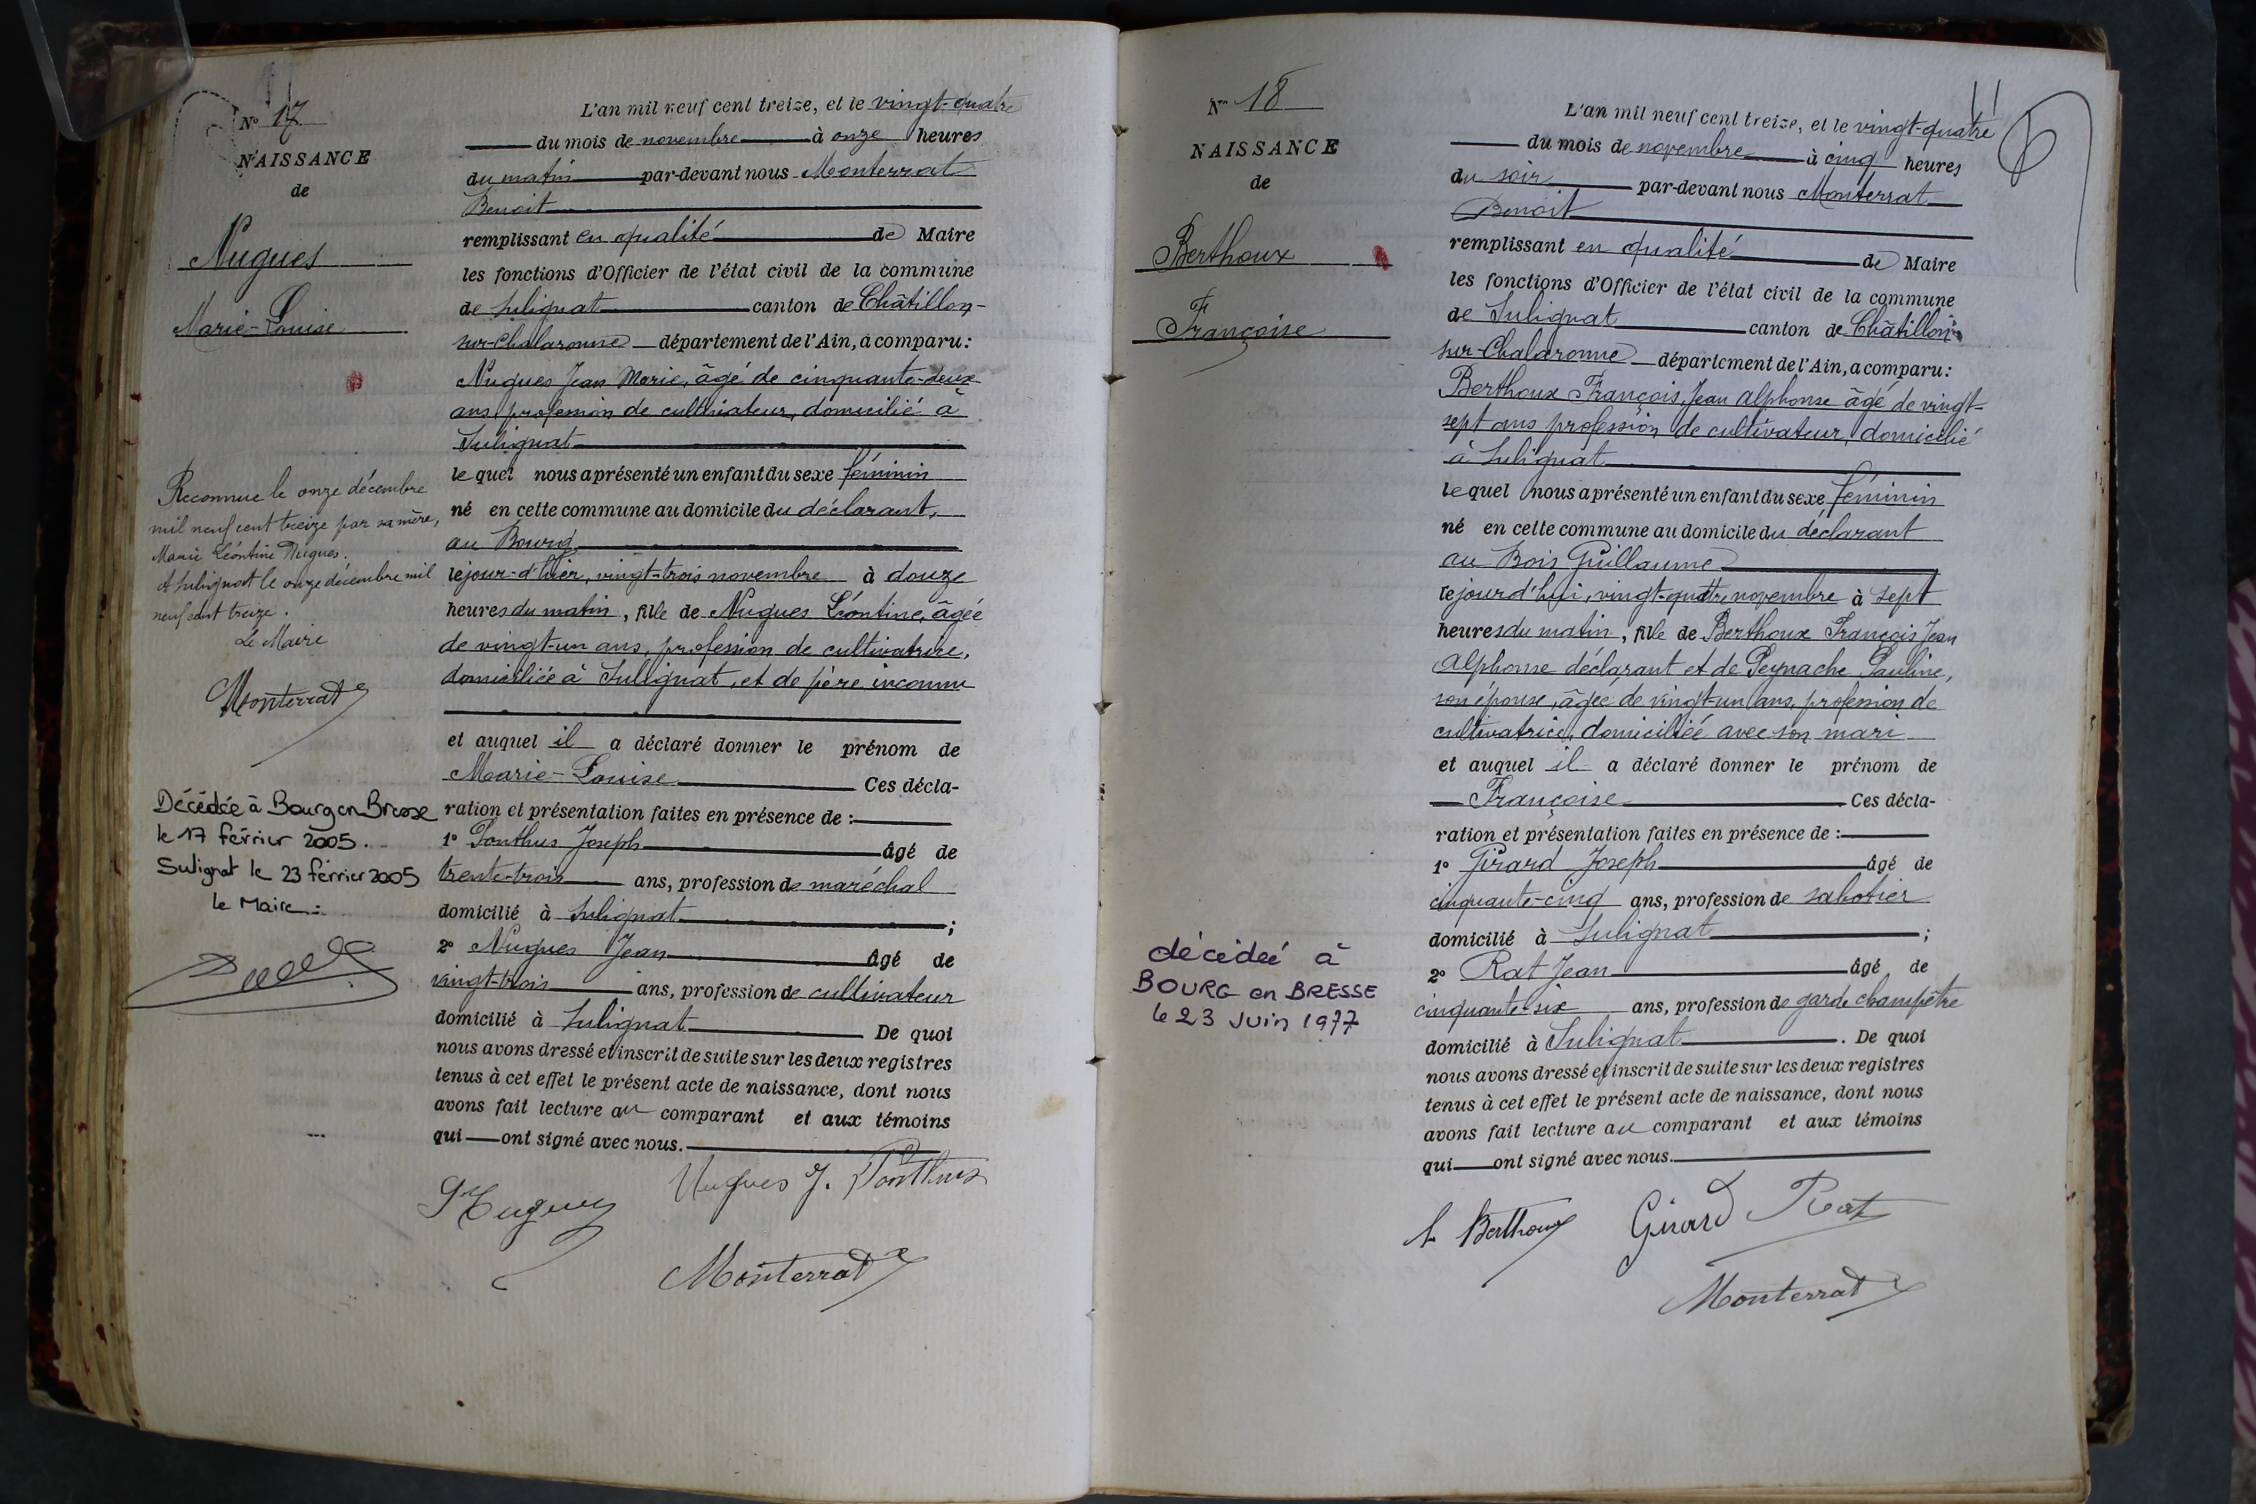 N° 17
NAISSANCE
de
Nugues
Marie-Louise
Reconnue le onze décembre
mil neuf cent treize par sa mère,
Marie Léontine Nugues.
A Sulignat le onze décembre mil
neuf cent treize.
Le Maire
Monterrat
Décédée à Bourg en Bresse
le 17 février 2005.
Sulignat le 23 février 2005
le Maire :
L'an mil neuf cent treize, et le vingt-quatre
du mois de novembre à onze heures
du matin par-devant nous Monterrat
Benoit
remplissant en qualité de Maire
les fonctions d'Officier de l'état civil de la commune
de Sulignat canton de Châtillon-
sur-Chalaronne département de l'Ain, a comparu :
Nugues Jean Marie, âgé de cinquante-deux
ans, profession de cultivateur, domicilié à
Sulignat
le quel nous a présenté un enfant du sexe féminin
né en cette commune au domicile du déclarant,
au Bourg
le jour-d'hier, vingt-trois novembre à douze
heures du matin, fille de Nugues Léontine, âgée
de vingt-un ans, profession de cultivatrice,
domiciliée à Sulignat, et de père inconnu
et auquel il a déclaré donner le prénom de
Marie-Louise Ces décla-
ration et présentation faites en présence de :
1° Ponthus Joseph âgé de
trente-trois ans, profession de maréchal
domicilié à Sulignat ;
2° Nugues Jean âgé de
vingt-trois ans, profession de cultivateur
domicilié à Sulignat De quoi
nous avons dressé et inscrit de suite sur les deux registres
tenus à cet effet le présent acte de naissance, dont nous
avons fait lecture au comparant et aux témoins
qui ont signé avec nous.
Nugues Nugues J. Ponthus
Monterrat
N° 18
NAISSANCE
de
Berthoux
Françoise
décédée à
BOURG en BRESSE
le 23 Juin 1977
11
L'an mil neuf cent treize, et le vingt-quatre
du mois de novembre à cinq heures
du soir par-devant nous Monterrat
Benoit
remplissant en qualité de Maire
les fonctions d'Officier de l'état civil de la commune
de Sulignat canton de Châtillon
sur-Chalaronne département de l'Ain, a comparu :
Berthoux François Jean Alphonse âgé de vingt-
sept ans profession de cultivateur, domicilié
à Sulignat
le quel nous a présenté un enfant du sexe féminin
né en cette commune au domicile du déclarant
au Bois Guillaume
le jourd'hui, vingt-quatre novembre à sept
heures du matin, fille de Berthoux François Jean
Alphonse déclarant et de Peynache Pauline,
son épouse, âgée de vingt-un ans, profession de
cultivatrice, domiciliée avec son mari
et auquel il a déclaré donner le prénom de
Françoise Ces décla-
ration et présentation faites en présence de :
1° Girard Joseph âgé de
cinquante-cinq ans, profession de sabotier
domicilié à Sulignat ;
2° Rat Jean âgé de
cinquante-six ans, profession de garde champêtre
domicilié à Sulignat . De quoi
nous avons dressé et inscrit de suite sur les deux registres
tenus à cet effet le présent acte de naissance, dont nous
avons fait lecture au comparant et aux témoins
qui ont signé avec nous.
Berthoux Girard Rat
Monterrat